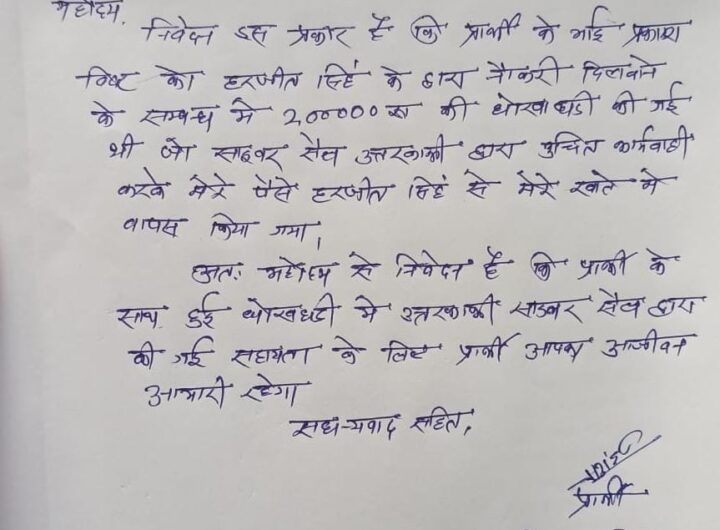 महोदय,
निवेदन इस प्रकार है कि प्रार्थी के भाई प्रकाश
बिष्ट को हरजीत सिहं के द्वारा नौकरी दिलवाने
के सम्बन्ध मे 200000 रू की धोखाधडी की गई
थी जो साइबर सैल उत्तरकाशी द्वारा उचित कार्यवाही
करके मेरे पैसे हरजीत सिहं से मेरे खाते मे
वापस किया गया।
अतः महोदय से निवेदन है कि प्रार्थी के
साथ हुई धोखाधडी मे उत्तरकाशी साइबर सैल द्वारा
की गई सहायता के लिए प्रार्थी आपका आजीवन
आभारी रहेगा
सधन्यवाद सहित,
प्रार्थी